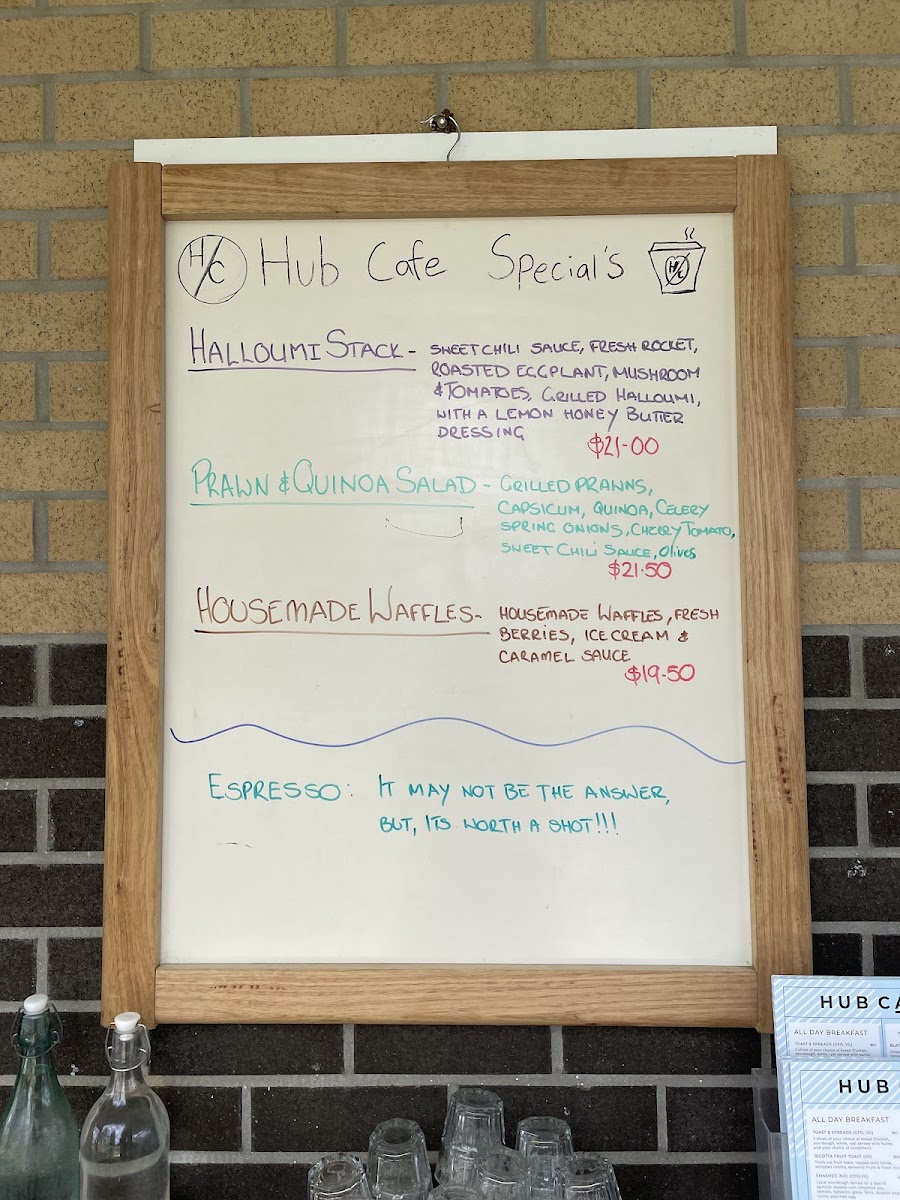 H/C Hub Cafe Special's H/C
HALLOUMI STACK - SWEET CHILI SAUCE, FRESH ROCKET,
ROASTED EGGPLANT, MUSHROOM
& TOMATOES, GRILLED HALLOUMI,
WITH A LEMON HONEY BUTTER
DRESSING
$21-00
PRAWN & QUINOA SALAD - GRILLED PRAWNS,
CAPSICUM, QUINOA, CELERY
SPRING ONIONS, CHERRY TOMATO,
SWEET CHILI SAUCE, Olives
$21.50
HOUSEMADE WAFFLES - HOUSEMADE WAFFLES, FRESH
BERRIES, ICE CREAM &
CARAMEL SAUCE
$19-50
ESPRESSO: IT MAY NOT BE THE ANSWER,
BUT, ITS WORTH A SHOT!!!
HUB
ALL DAY BREAKFAST
TOAST & SPREADS (GFO, VG)
HUB
ALL DAY BREAKFAST
TOAST & SPREADS (GFO, VG)
RICOTTA FRUIT TOAST